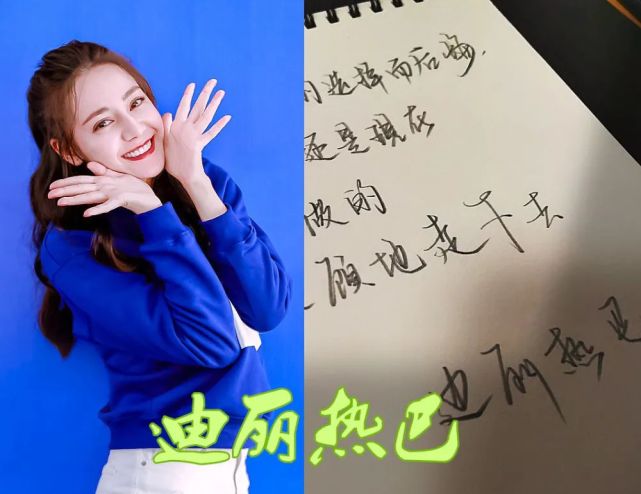 的选择而后悔.
还是现在
做的
顾地走下去
迪丽热巴
迪丽热巴